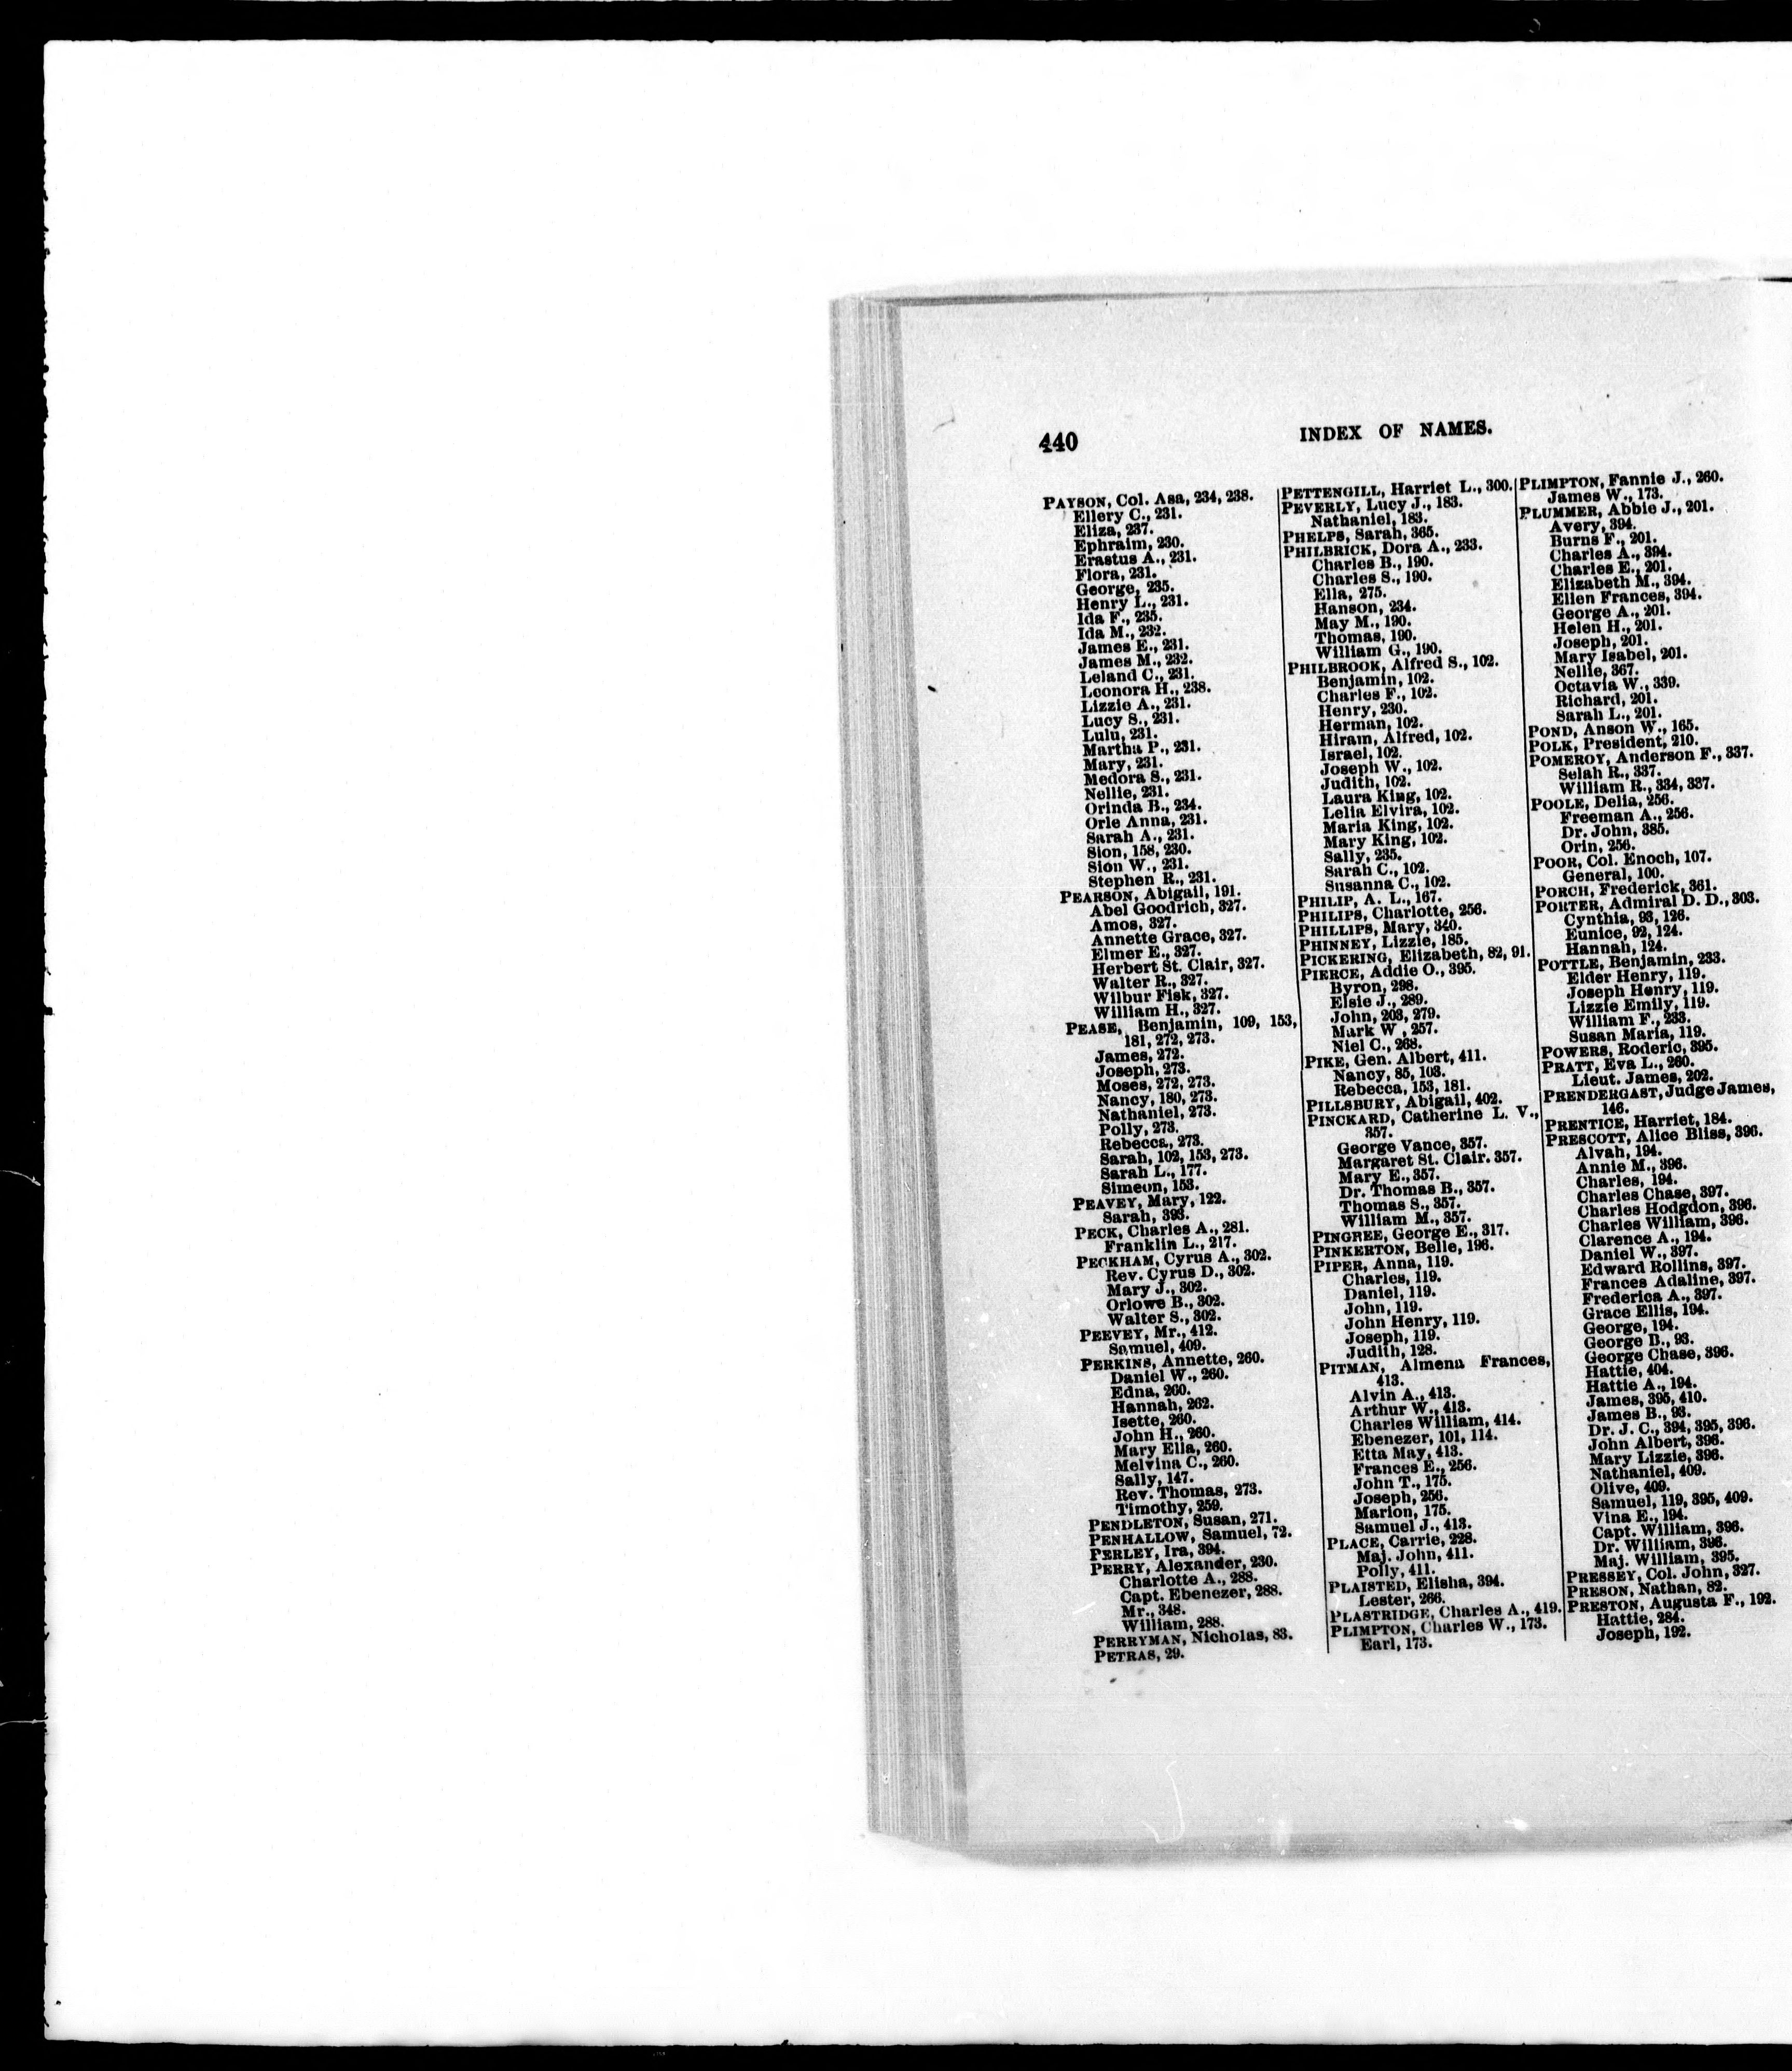 440
INDEX OF NAMES.
PAYSON, Col. Asa, 234, 238.
Ellery C., 231.
Eliza, 237.
Ephraim, 230.
Erastus A., 231.
Flora, 231.
George, 235.
Henry L., 231.
Ida F., 235.
Ida M., 232.
James E., 231.
James M., 232.
Leland C., 231.
Leonora H., 238.
Lizzie A., 231.
Lucy S., 231.
Lulu, 231.
Martha P., 231.
Mary, 231.
Medora S., 231.
Nellie, 231.
Orinda B., 234.
Orle Anna, 231.
Sarah A., 231.
Sion, 158, 230.
Sion W., 231.
Stephen R., 231.
PEARSON, Abigail, 191.
Abel Goodrich, 327.
Amos, 327.
Annette Grace, 327.
Elmer E., 327.
Herbert St. Clair, 327.
Walter R., 327.
Wilbur Fisk, 327.
William H., 327.
PEASE, Benjamin, 109, 153,
181, 272, 273.
James, 272.
Joseph, 273.
Moses, 272, 273.
Nancy, 180, 273.
Nathaniel, 273.
Polly, 273.
Rebecca, 273.
Sarah, 102, 153, 273.
Sarah L., 177.
Simeon, 153.
PEAVEY, Mary, 122.
Sarah, 393.
PECK, Charles A., 281.
Franklin L., 217.
PECKHAM, Cyrus A., 302.
Rev. Cyrus D., 302.
Mary J., 302.
Orlowe B., 302.
Walter S., 302.
PEEVEY, Mr., 412.
Samuel, 409.
PERKINS, Annette, 260.
Daniel W., 260.
Edna, 260.
Hannah, 262.
Isette, 260.
John H., 260.
Mary Ella, 260.
Melvina C., 260.
Sally, 147.
Rev. Thomas, 273.
Timothy, 259.
PENDLETON, Susan, 271.
PENHALLOW, Samuel, 72.
PERLEY, Ira, 394.
PERRY, Alexander, 230.
Charlotte A., 288.
Capt. Ebenezer, 288.
Mr., 348.
William, 288.
PERRYMAN, Nicholas, 83.
PETRAS, 29.
PETTENGILL, Harriet L., 300.
PEVERLY, Lucy J., 183.
Nathaniel, 183.
PHELPS, Sarah, 365.
PHILBRICK, Dora A., 233.
Charles B., 190.
Charles S., 190.
Ella, 275.
Hanson, 234.
May M., 190.
Thomas, 190.
William G., 190.
PHILBROOK, Alfred S., 102.
Benjamin, 102.
Charles F., 102.
Henry, 230.
Herman, 102.
Hiram, Alfred, 102.
Israel, 102.
Joseph W., 102.
Judith, 102.
Laura King, 102.
Lelia Elvira, 102.
Maria King, 102.
Mary King, 102.
Sally, 235.
Sarah C., 102.
Susanna C., 102.
PHILIP, A. L., 167.
PHILIPS, Charlotte, 256.
PHILLIPS, Mary, 340.
PHINNEY, Lizzie, 185.
PICKERING, Elizabeth, 82, 91.
PIERCE, Addie O., 395.
Byron, 298.
Elsie J., 289.
John, 203, 279.
Mark W , 257.
Niel C., 268.
PIKE, Gen. Albert, 411.
Nancy, 85, 103.
Rebecca, 153, 181.
PILLSBURY, Abigail, 402.
PINCKARD, Catherine L. V.,
357.
George Vance, 357.
Margaret St. Clair. 357.
Mary E., 357.
Dr. Thomas B., 357.
Thomas S., 357.
William M., 357.
PINGREE, George E., 317.
PINKERTON, Belle, 196.
PIPER, Anna, 119.
Charles, 119.
Daniel, 119.
John, 119.
John Henry, 119.
Joseph, 119.
Judith, 128.
PITMAN, Almena Frances,
413.
Alvin A., 413.
Arthur W., 413.
Charles William, 414.
Ebenezer, 101, 114.
Etta May, 413.
Frances E., 256.
John T., 175.
Joseph, 256.
Marion, 175.
Samuel J., 413.
PLACE, Carrie, 228.
Maj. John, 411.
Polly, 411.
PLAISTED, Elisha, 394.
Lester, 266.
PLASTRIDGE, Charles A., 419.
PLIMPTON, Charles W., 173.
Earl, 173.
PLIMPTON, Fannie J., 260.
James W., 173.
PLUMMER, Abbie J., 201.
Avery, 394.
Burns F., 201.
Charles A., 394.
Charles E., 201.
Elizabeth M., 394.
Ellen Frances, 394.
George A., 201.
Helen H., 201.
Joseph, 201.
Mary Isabel, 201.
Nellie, 367.
Octavia W., 339.
Richard, 201.
Sarah L., 201.
POND, Anson W., 165.
POLK, President, 210.
POMEROY, Anderson F., 337.
Selah R., 337.
William R., 334, 337.
POOLE, Delia, 256.
Freeman A., 256.
Dr. John, 385.
Orin, 256.
POOR, Col. Enoch, 107.
General, 100.
PORCH, Frederick, 361.
PORTER, Admiral D. D., 303.
Cynthia, 93, 126.
Eunice, 92, 124.
Hannah, 124.
POTTLE, Benjamin, 233.
Elder Henry, 119.
Joseph Henry, 119.
Lizzie Emily, 119.
William F., 233.
Susan Maria, 119.
POWERS, Roderic, 395.
PRATT, Eva L., 260.
Lieut. James, 202.
PRENDERGAST, Judge James,
146.
PRENTICE, Harriet, 184.
PRESCOTT, Alice Bliss, 396.
Alvah, 194.
Annie M., 396.
Charles, 194.
Charles Chase, 397.
Charles Hodgdon, 396.
Charles William, 396.
Clarence A., 194.
Daniel W., 397.
Edward Rollins, 397.
Frances Adaline, 397.
Frederica A., 397.
Grace Ellis, 194.
George, 194.
George B., 93.
George Chase, 396.
Hattie, 404.
Hattie A., 194.
James, 395, 410.
James B., 93.
Dr. J. C., 394, 395, 396.
John Albert, 396.
Mary Lizzie, 396.
Nathaniel, 409.
Olive, 409.
Samuel, 119, 395, 409.
Vina E., 194.
Capt. William, 396.
Dr. William, 396.
Maj. William, 395.
PRESSEY, Col. John, 327.
PRESON, Nathan, 82.
PRESTON, Augusta F., 192.
Hattie, 284.
Joseph, 192.